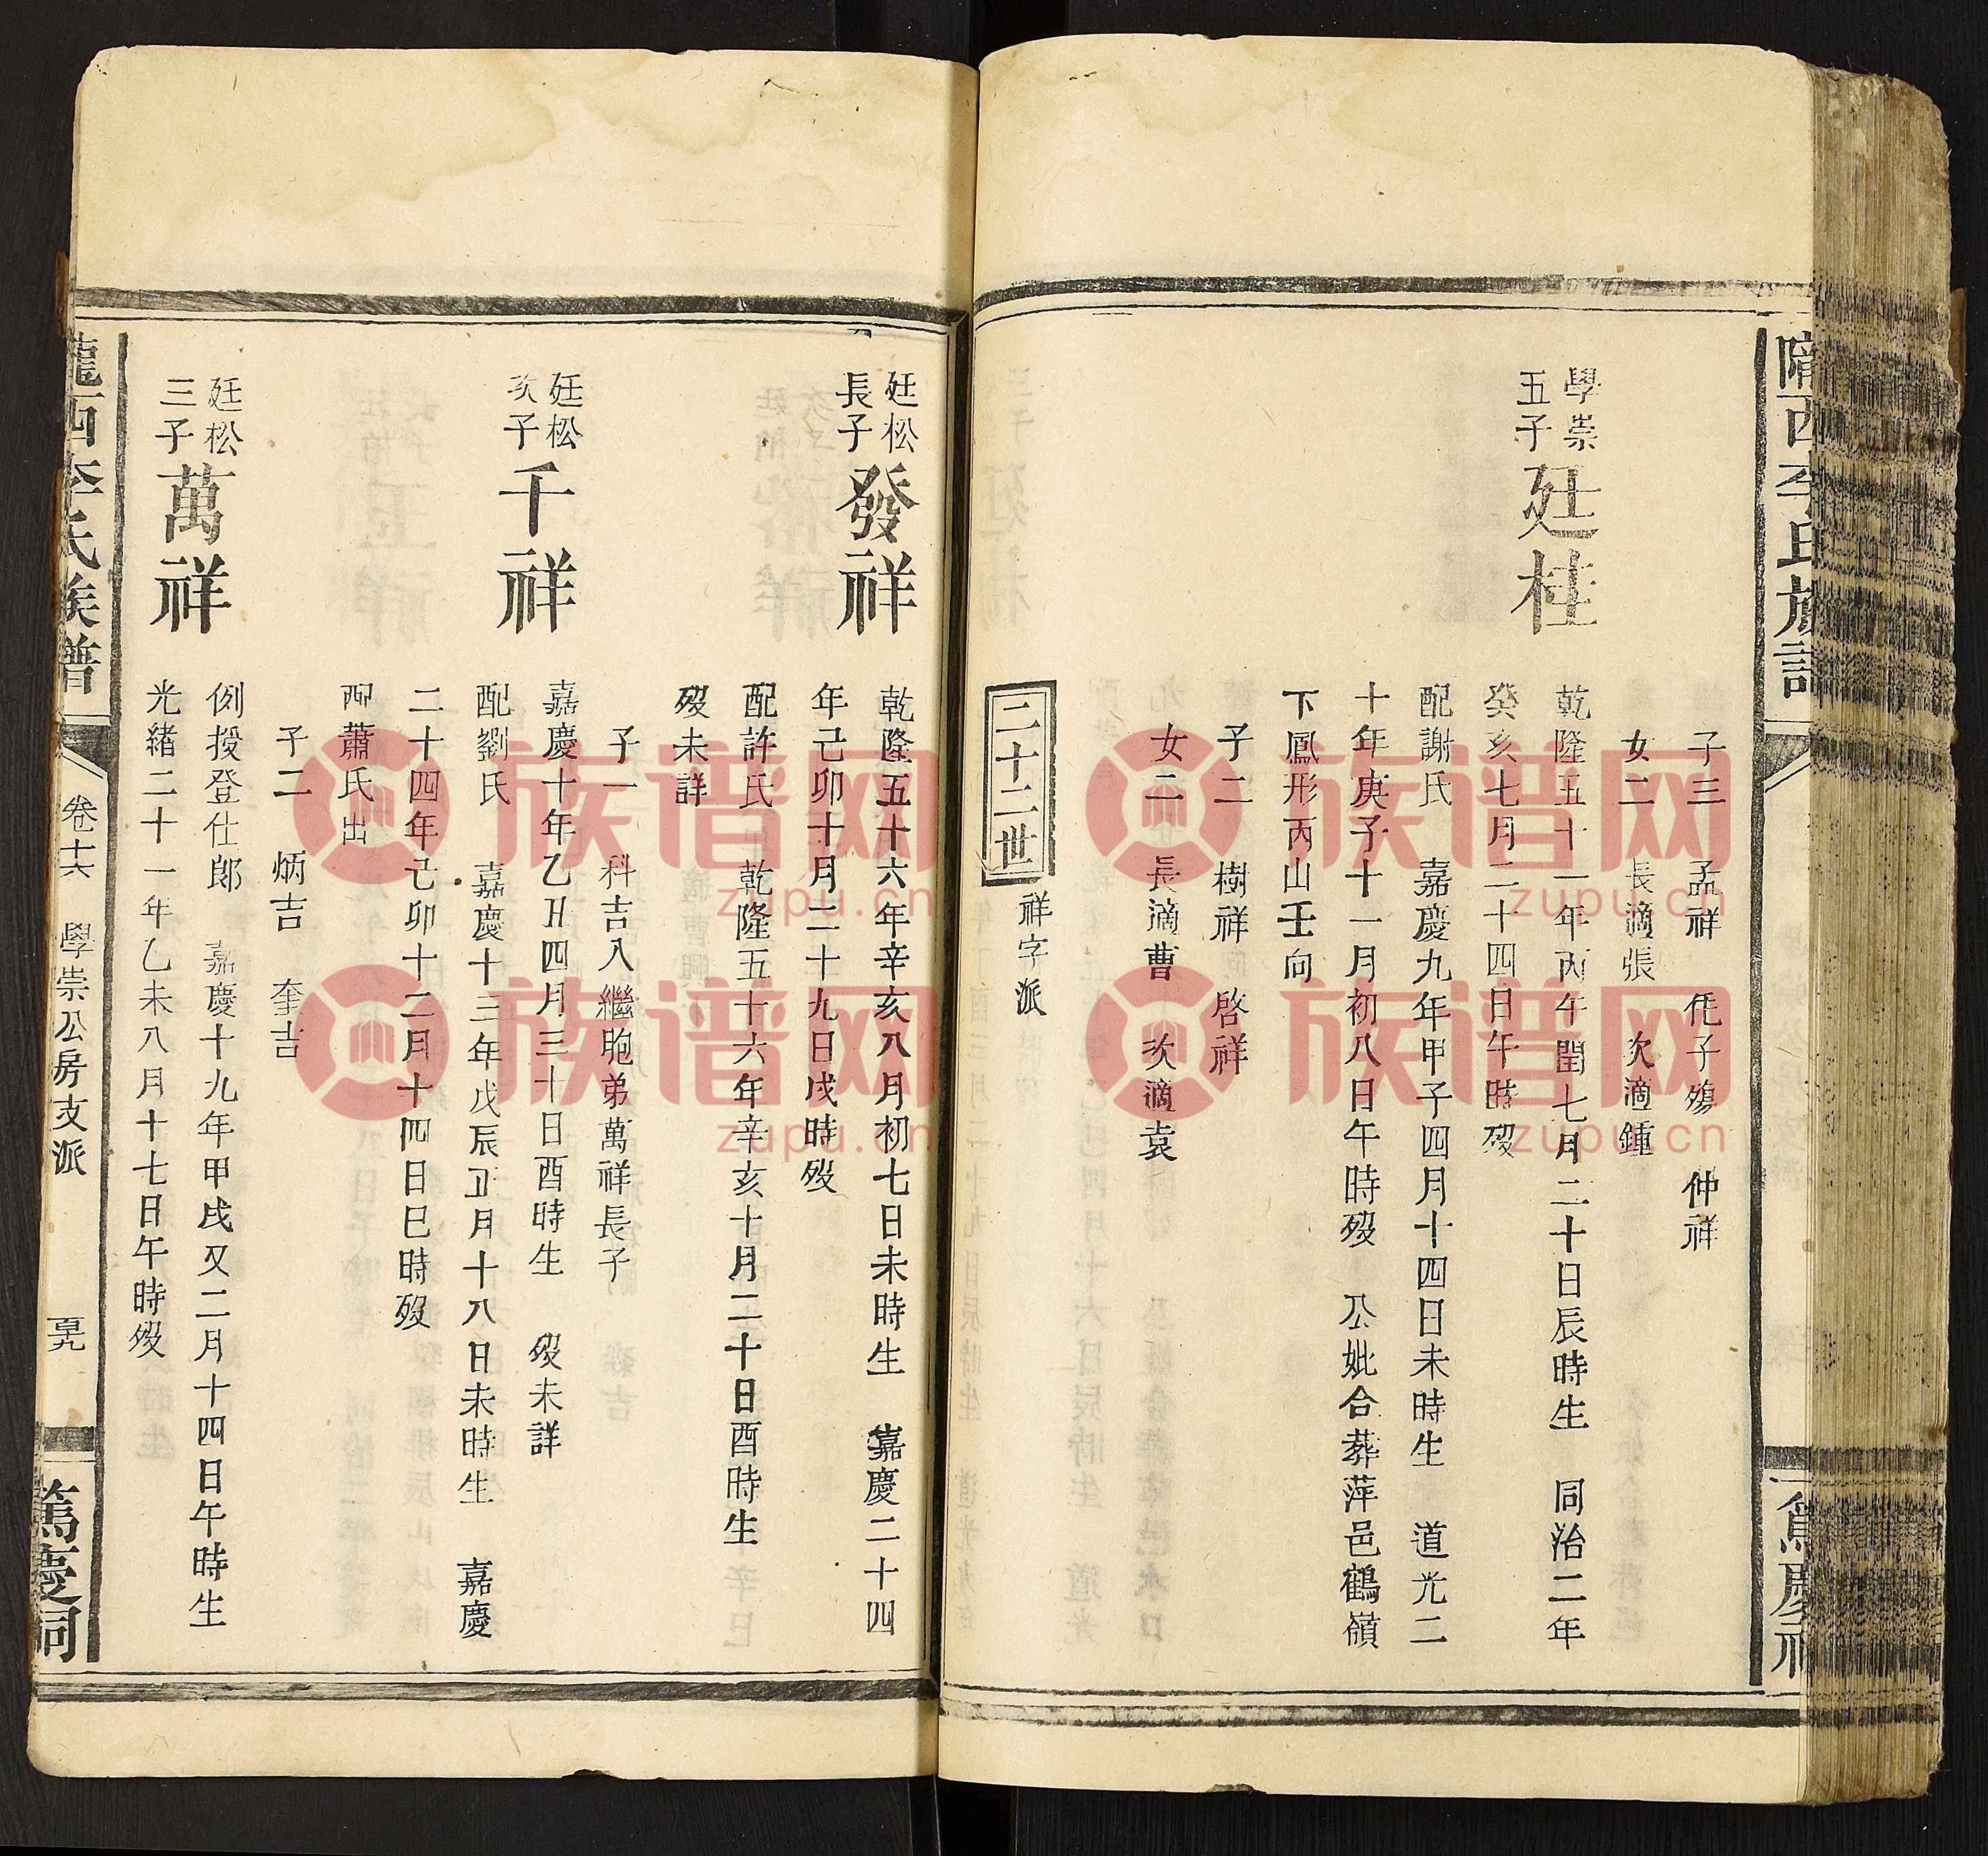 子三 孟祥 仛子殤 仲祥
女二 長適張 次適鍾
學崇
五子
廷桂
乾隆五十一年丙午閏七月二十日辰時生 同治二年
癸亥七月二十四日午時歿
配謝氏 嘉慶九年甲子四月十四日未時生 道光二
十年庚子十一月初八日午時歿 公妣合葬萍邑鶴嶺
下鳳形丙山壬向
子二 樹祥 啓祥
女二 長適曹 次適袁
二十二世 祥字派
廷松
長子
發祥
乾隆五十六年辛亥八月初七日未時生 嘉慶二十四
年己卯十月二十九日戌時歿
配許氏 乾隆五十六年辛亥十月二十日酉時生
歿未詳
子一 科吉入繼胞弟萬祥長子
廷松
次子
千祥
嘉慶十年乙丑四月三十日酉時生 歿未詳
配劉氏 嘉慶十三年戊辰正月十八日未時生 嘉慶
二十四年己卯十二月十四日巳時歿
配蕭氏出
子二 炳吉 奎吉
廷松
三子
萬祥
例授登仕郎 嘉慶十九年甲戌又二月十四日午時生
光緒二十一年乙未八月十七日午時歿
隴西李氏族譜 卷十六 學崇公房支派 篤慶祠
族谱网
zupu.cn
族谱网
zupu.cn
族谱网
zupu.cn
族谱网
zupu.cn